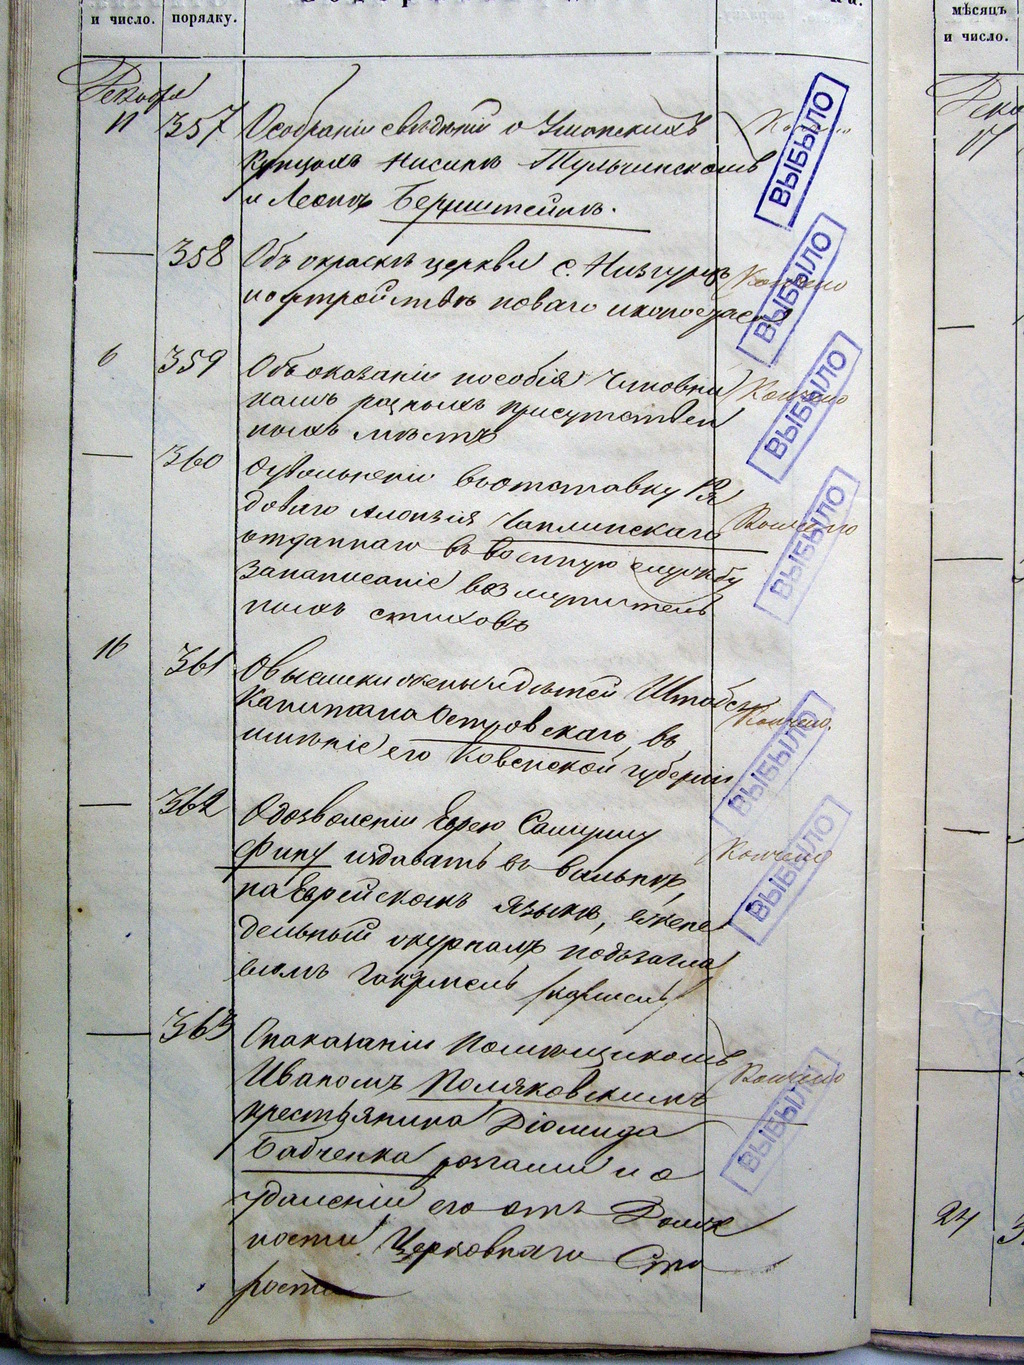 и число.
порядку.
мѣсяцъ
и число.
Декабря
11 357 О собраніи свѣдѣній о Уманскихъ
купцахъ Нисинѣ Тульчинскомъ
и Леонѣ Бернштейнѣ.
ВЫБЫЛО
— 358 Объ окраскѣ церкви с. Низгурцѣ Кончено
и о устройствѣ новаго иконостаса
ВЫБЫЛО
6 359 Объ оказаніи пособія Чиновни Кончено
камъ разныхъ присутствен
ныхъ мѣстъ
ВЫБЫЛО
— 360 О увольненіи въ отставку Ря
доваго Алоизія Чаплинскаго Кончено
отданнаго въ военную службу
за написаніе возмутитель
ныхъ стиховъ
ВЫБЫЛО
16 361 О высылки жены и дѣтей Штабсъ
Капитана Островскаго, въ Кончено.
имѣніе его Ковенской губерніи
ВЫБЫЛО
— 362 О дозволеніи Еврею Самуилу
Фину издавать въ Вильнѣ, Кончено
на Еврейскомъ языкѣ, ежене
дѣльный журналъ подъ загла
віемъ Гакрмель (кармель)
ВЫБЫЛО
— 363 О наказаніи Помѣщикомъ
Иваномъ Поляковскимъ Кончено
крестьянина Діомида
Бабченка розгами и о
удаленіи его отъ Долж
ности Церковнаго Ста
росты
ВЫБЫЛО
17
24